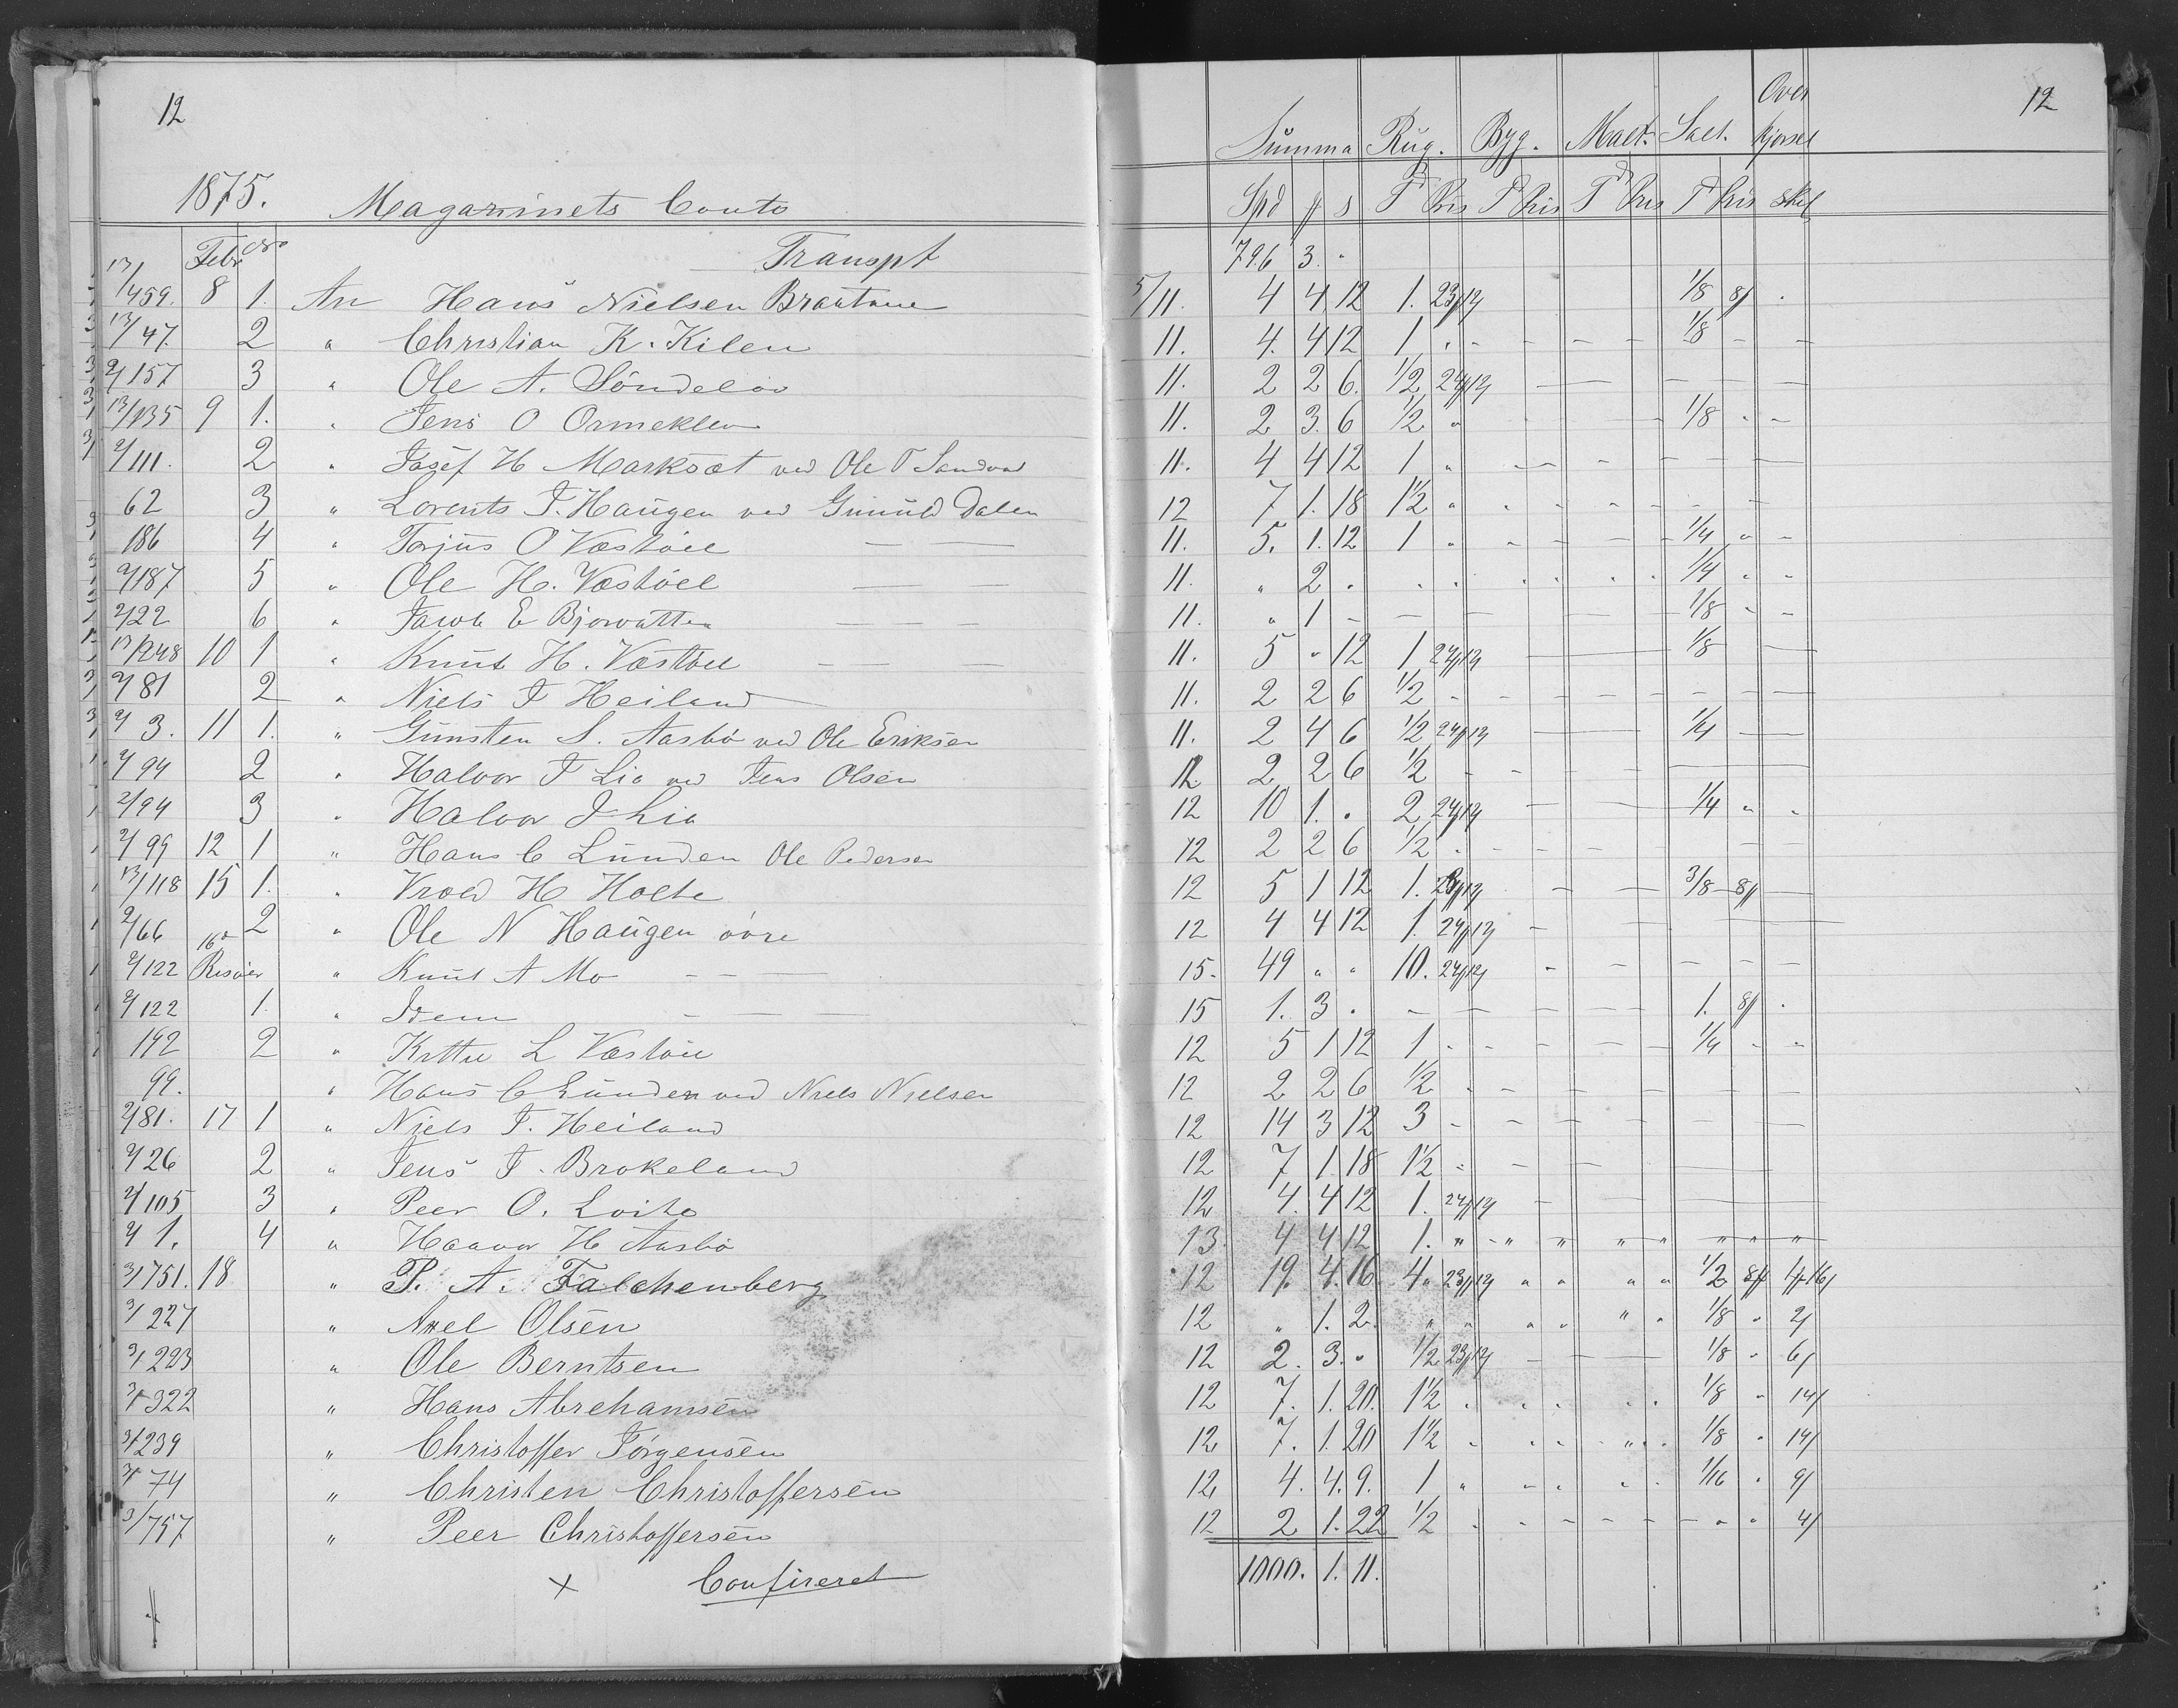 12 12
Over
Summa Rug. Byg. Malt. Salt. kjørsel
1875. Magazinets Conto Spd s Td Pris T Pris Td Pris Td Pris Skl
Febr No Transpt 796 3 "
13/459. 8 1. An Hans Nielsen 5/11. 4 4 12 1. 1/8
13/47 2 " Christian K. Kilen 11. 4. 4 12 1 " - - - - 1/8 - -
2/157 3 " Ole A. Søndeløv 11. 2 2 6. 1/2
13/135 9 1. " Jens O Ormeklev 11. 2 3. 6 1/2 " 1/8 " -
2/111. 2 " Josef H Marksæt ved Ole T 11. 4 4 12 1 "
62 3 " Lorents J. Haugen ved Gunuld Dalen 12 7 1. 18 1 1/2 "
186 4 " Torjus O Væstøel — — 11. 5. 1. 12 1 " 1/4 " -
2/187 5 " Ole H. Væstøel — — 11. " 2 " 1/4 " "
2/22 6 " Jacob E Bjorvatten — — — 11. " 1 - 1/8 " -
13/248 10 1 " Knut H. Væstøel — — — 11. 5 " 12 1 1/8
2/81 2 " Niels J Heiland 11. 2 2 6 1/2
2/3. 11 1. " Gunsten S. Aasbø ved Ole Eriksen 11. 2 4 6 1/2 1/4
2/94 2 " Halvor J Lia ved Jens Olsen 12 2 2 6 1/2
2/94 3 " Halvor J Lia 12 10 1. " 2 1/4 " "
2/99 12 1 " Hans C Lunden Ole Pedersen 12 2 2 6 1/2
13/118 15 1. " Vrold H Holte 12 5 1 12 1. 3/8
2/66 2 " Ole N Haugen øvre 12 4 4 12 1.
2/122 16de Risøer " Knut A Mo - - — 15. 49 " " 10.
2/122 1. " Idem - — — 15 1. 3 " 1.
192 2 " L Væstøel 12 5 1 12 1 1/4 - -
99. " Hans C Lunden ved Niels Nielsen 12 2 2 6 1/2
2/81. 17 1 " Niels J. Heiland 12 14 3 12 3
2/26 2 " Jens J. Brokeland 12 7 1 18 1 1/2
2/105 3 " Peer O. Loite 12 4. 4 12 1.
2/1. 4 " Haavor H Aasbø 13. 4 4 12 1.
3/751. 18 " P. A. Falchenberg 12 19. 4. 16 4 1/2
3/227 " Axel Olsen 12 " 1. 2. 1/8 " 2/
3/223 " Ole Berntsen 12 2. 3. " 1/2 1/8 " 6/
3/322 " Hans Abrehamsen 12 7. 1. 20. 1 1/2 1/8 " 14/
3/239 " Christoffer Jørgensen 12 7. 1. 20 1 1/2 1/8 " 14/
3/74 " Christen Christoffersen 12 4. 4. 9. 1 1/16 " 9/
3/757 " Peer Christoffersen 12 2 1. 22 1/2 4/
x Confireret 1000. 1. 11.